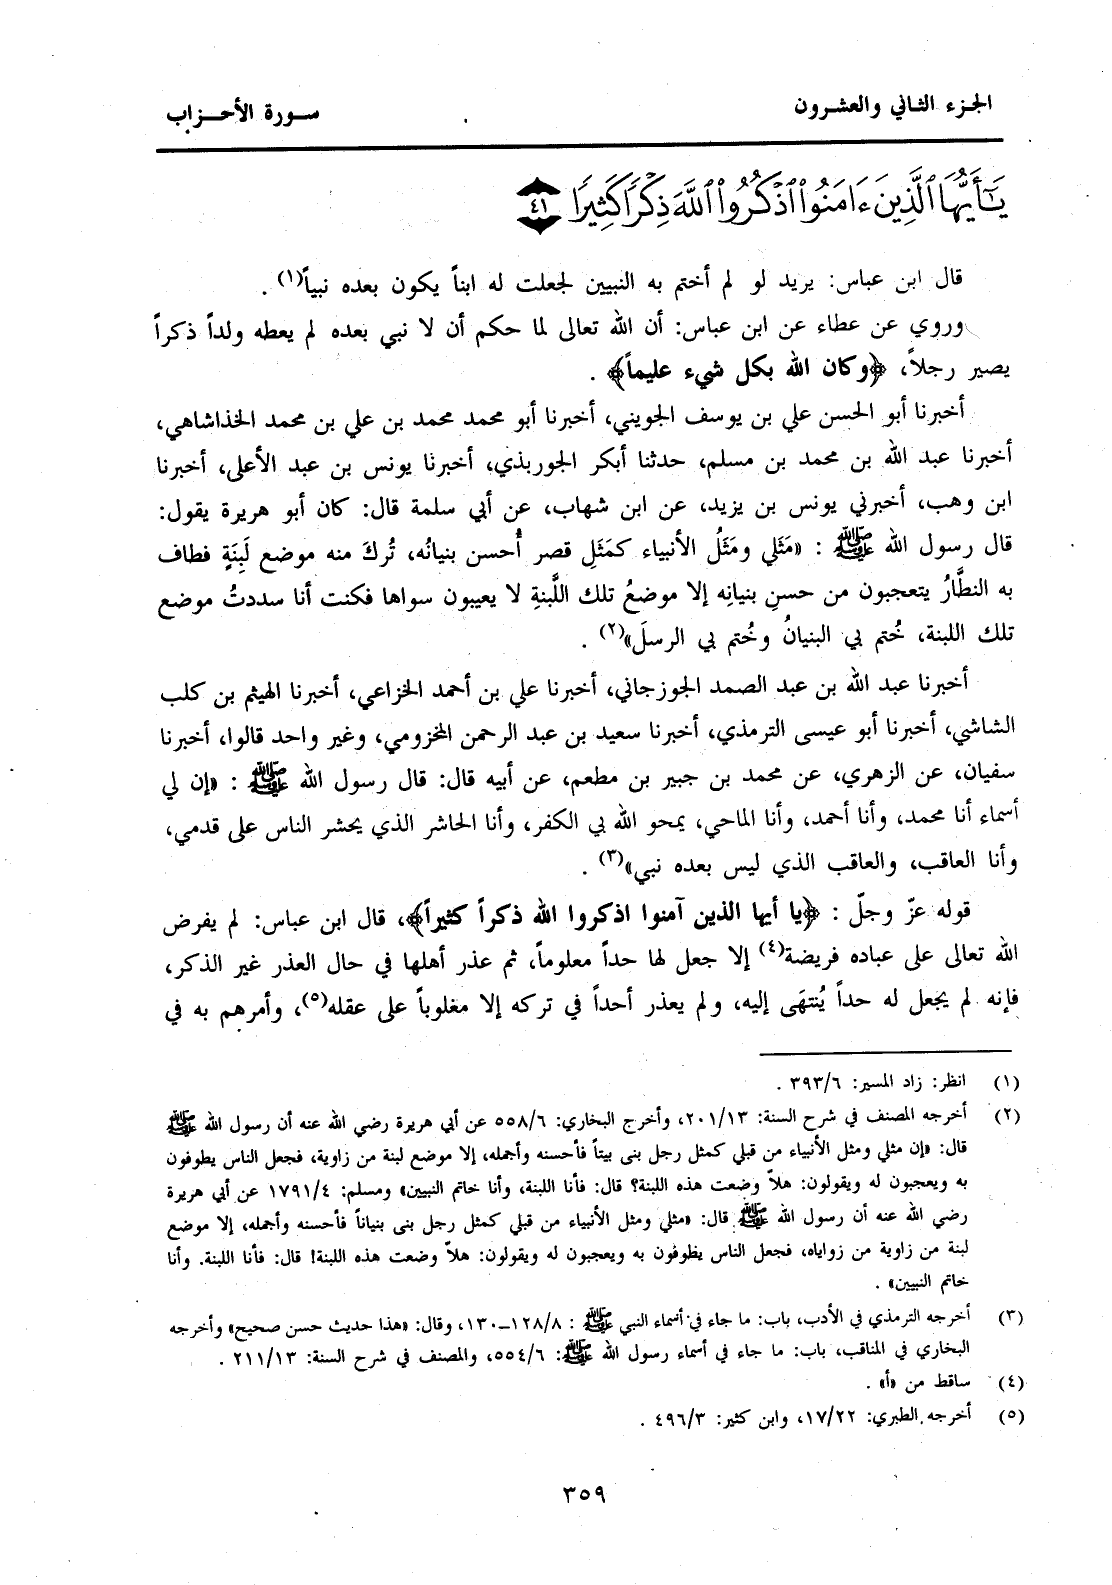 الجزء الثاني والعشرون
سورة الأحزاب
يَٰٓأَيُّهَا ٱلَّذِينَ ءَامَنُوا۟ ٱذْكُرُوا۟ ٱللَّهَ ذِكْرًا كَثِيرًا ٤١
قال ابن عباس: يريد لو لم أختم به النبيين لجعلت له ابناً يكون بعده نبياً(١) .
وروي عن عطاء عن ابن عباس: أن الله تعالى لما حكم أن لا نبي بعده لم يعطه ولداً ذكراً
يصير رجلاً، ﴿وكان الله بكل شيء عليماً﴾ .
أخبرنا أبو الحسن علي بن يوسف الجويني، أخبرنا أبو محمد محمد بن علي بن محمد الخذاشاهي،
أخبرنا عبد الله بن محمد بن مسلم، حدثنا أبكر الجوربذي، أخبرنا يونس بن عبد الأعلى، أخبرنا
ابن وهب، أخبرني يونس بن يزيد، عن ابن شهاب، عن أبي سلمة قال: كان أبو هريرة يقول:
قال رسول الله ﷺ : «مَثَلي ومَثَلُ الأنبياء كمَثَلِ قصر أُحسن بنيانُه، تُركَ منه موضع لَبِنَةٍ فطاف
به النظَّارُ يتعجبون من حسنِ بنيانِه إلا موضعُ تلك اللَّبنةِ لا يعيبون سواها فكنت أنا سددتُ موضع
تلك اللبنة، خُتم بي البنيانُ وخُتم بي الرسلَ»(٢) .
أخبرنا عبد الله بن عبد الصمد الجوزجاني، أخبرنا علي بن أحمد الخزاعي، أخبرنا الهيثم بن كلب
الشاشي، أخبرنا أبو عيسى الترمذي، أخبرنا سعيد بن عبد الرحمن المخزومي، وغير واحد قالوا، أخبرنا
سفيان، عن الزهري، عن محمد بن جبير بن مطعم، عن أبيه قال: قال رسول الله ﷺ : «إن لي
أسماء أنا محمد، وأنا أحمد، وأنا الماحي، يمحو الله بي الكفر، وأنا الحاشر الذي يحشر الناس على قدمي،
وأنا العاقب، والعاقب الذي ليس بعده نبي»(٣) .
قوله عزّ وجلّ : ﴿يا أيها الذين آمنوا اذكروا الله ذكراً كثيراً﴾، قال ابن عباس: لم يفرض
الله تعالى على عباده فريضة(٤) إلا جعل لها حداً معلوماً، ثم عذر أهلها في حال العذر غير الذكر،
فإنه لم يجعل له حداً يُنتهَى إليه، ولم يعذر أحداً في تركه إلا مغلوباً على عقله(٥)، وأمرهم به في
(١) انظر: زاد المسير: ٣٩٣/٦ .
(٢) أخرجه المصنف في شرح السنة: ٢٠١/١٣، وأخرج البخاري: ٥٥٨/٦ عن أبي هريرة رضي الله عنه أن رسول الله ﷺ
قال: «إن مثلي ومثل الأنبياء من قبلي كمثل رجل بنى بيتاً فأحسنه وأجمله، إلا موضع لبنة من زاوية، فجعل الناس يطوفون
به ويعجبون له ويقولون: هلاّ وضعت هذه اللبنة؟ قال: فأنا اللبنة، وأنا خاتم النبيين» ومسلم: ١٧٩١/٤ عن أبي هريرة
رضي الله عنه أن رسول الله ﷺ قال: «مثلي ومثل الأنبياء من قبلي كمثل رجل بنى بنياناً فأحسنه وأجمله، إلا موضع
لبنة من زاوية من زواياه، فجعل الناس يطوفون به ويعجبون له ويقولون: هلاّ وضعت هذه اللبنة! قال: فأنا اللبنة. وأنا
خاتم النبيين» .
(٣) أخرجه الترمذي في الأدب، باب: ما جاء في أسماء النبي ﷺ : ١٢٨/٨-١٣٠، وقال: «هذا حديث حسن صحيح» وأخرجه
البخاري في المناقب، باب: ما جاء في أسماء رسول الله ﷺ: ٥٥٤/٦، والمصنف في شرح السنة: ٢١١/١٣ .
(٤) ساقط من «أ» .
(٥) أخرجه الطبري: ١٧/٢٢، وابن كثير: ٤٩٦/٣ .
٣٥٩